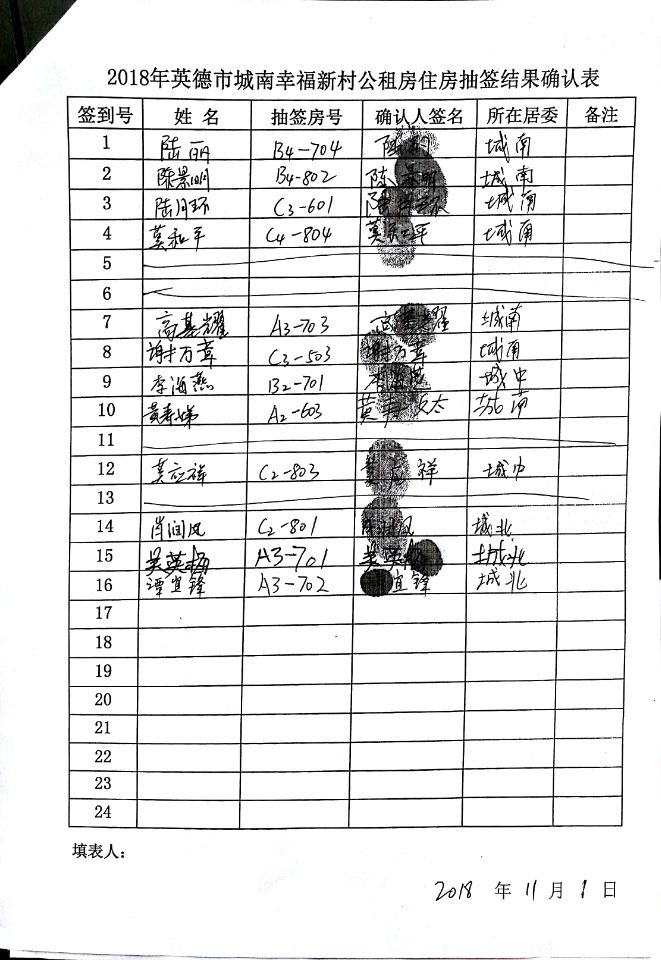 2018年英德市城南幸福新村公租房住房抽签结果确认表
签到号 姓名 抽签房号 确认人签名 所在居委 备注
1 陆丽 B4-704 陆丽 城南
2 陈景明 B4-802 陈景明 城南
3 陆月环 C3-601 陆月环 城南
4 莫和平 C4-804 莫和平 城南
5
6
7 高基耀 A3-703 高基耀 城南
8 谢万章 C3-503 谢万章 城南
9 李海燕 B2-701 李海燕 城中
10 黄寿娣 A2-603 黄寿 城南
11
12 莫应祥 C2-803 莫应祥 城中
13
14 肖润风 C2-801 肖润风 城北
15 吴英杨 A3-701 吴英杨 城北
16 谭宜锋 A3-702 宜锋 城北
17
18
19
20
21
22
23
24
填表人：
2018 年 11 月 1 日